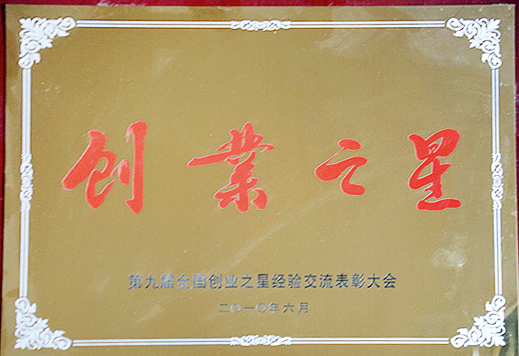 创業之星
第九届全国创业之星经验交流表彰大会
二〇一〇年六月